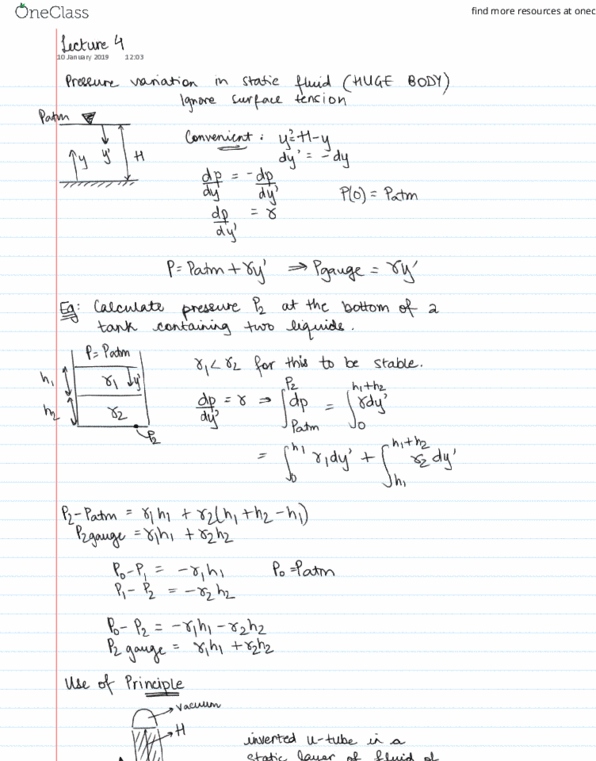 OneClass
find more resources at onec
Lecture 4
10 January 2019 12:03
Pressure variation in static fluid (HUGE BODY)
Ignore surface tension
Patm
y y' H
Convenient : y'=H-y
dy' = -dy
dp/dy = -dp/dy'
P(0) = Patm
dp/dy' = γ
P = Patm + γy' ⇒ Pgauge = γy'
Eg: Calculate pressure P2 at the bottom of a
tank containing two liquids.
P = Patm
h1 γ1 y'
h2 γ2
P2
γ1 < γ2 for this to be stable.
dp/dy' = γ ⇒ ∫_Patm^P2 dp = ∫_0^h1+h2 γdy'
= ∫_0^h1 γ1dy' + ∫_h1^h1+h2 γ2 dy'
P2-Patm = γ1h1 + γ2(h1+h2-h1)
P2gauge = γ1h1 + γ2h2
P0-P1 = -γ1h1 P0=Patm
P1-P2 = -γ2h2
P0-P2 = -γ1h1-γ2h2
P2 gauge = γ1h1+γ2h2
Use of Principle
vacuum
H
inverted u-tube in a
static layer of fluid of